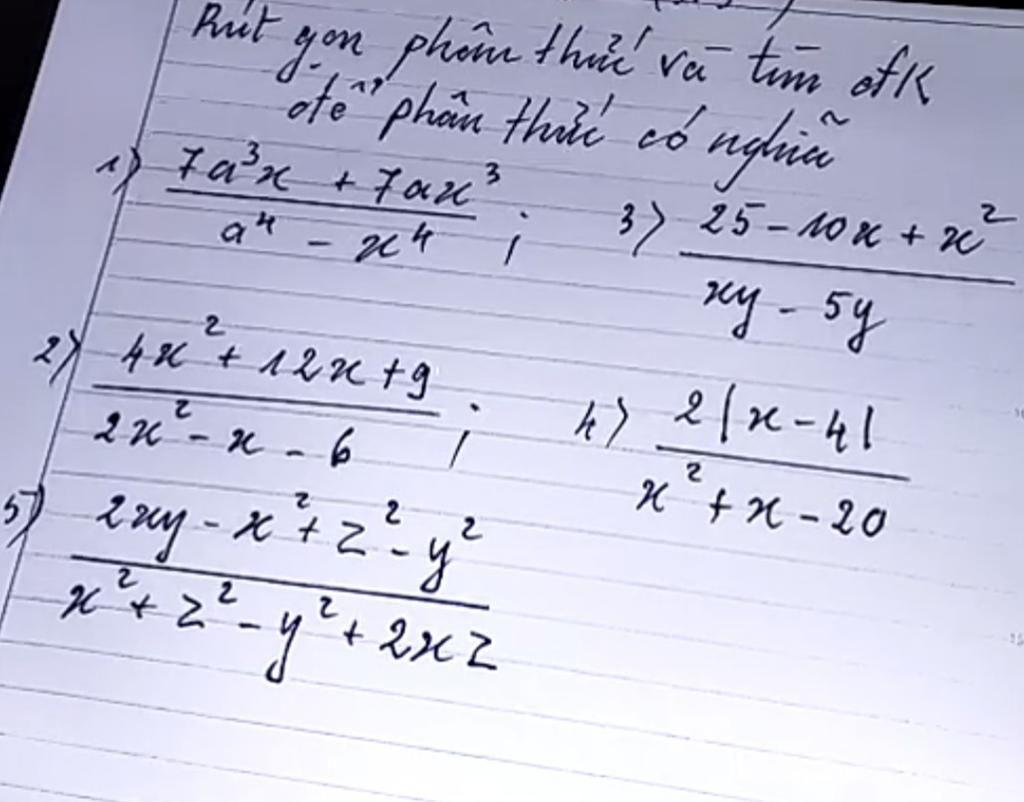 Rút gọn phân thức và tìm đfK
để phân thức có nghĩa
1) (7a³x + 7ax³)/(a⁴ - x⁴) ; 3) (25 - 10x + x²)/(xy - 5y)
2) (4x² + 12x + 9)/(2x² - x - 6) ; 4) (2|x - 4|)/(x² + x - 20)
5) (2xy - x² + z² - y²)/(x² + z² - y² + 2xz)